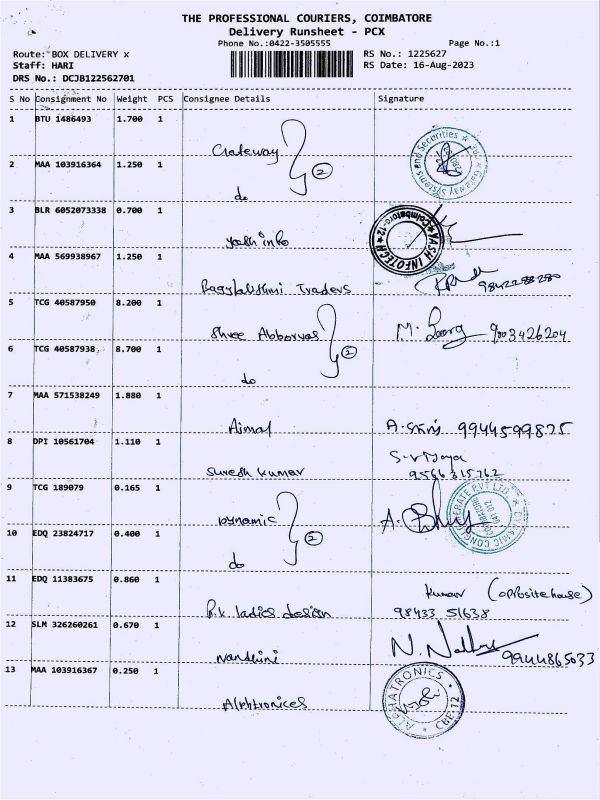 THE PROFESSIONAL COURIERS, COIMBATORE
Delivery Runsheet - PCX
Phone No.:0422-3505555 Page No.:1
Route: BOX DELIVERY x RS No.: 1225627
Staff: HARI RS Date: 16-Aug-2023
DRS No.: DCJB122562701
S No Consignment No Weight PCS Consignee Details Signature
1 BTU 1486493 1.700 1
Gateway
2 MAA 103916364 1.250 1
2
do
3 BLR 6052073338 0.700 1
yash info
YASH INFOTECH Coimbatore-12
4 MAA 569938967 1.250 1
Bagyalakshmi Traders 9842288280
5 TCG 40587950 8.200 1
Shree Abborvas M. 9003426204
6 TCG 40587938 8.700 1
2
do
7 MAA 571538249 1.880 1
Ajmal 9944599825
8 DPI 10561704 1.110 1
S-vijaya
Suresh kumar 9566315762
9 TCG 189079 0.165 1
Dynamic A.
10 EDQ 23824717 0.400 1
2
do
11 EDQ 11383675 0.860 1
Kumar (opposite house)
R.K ladies design 98433 51638
12 SLM 326260261 0.670 1
Nandhini 9944865033
13 MAA 103916367 0.250 1
Alphtronices
ALPHATRONICS CBE-12